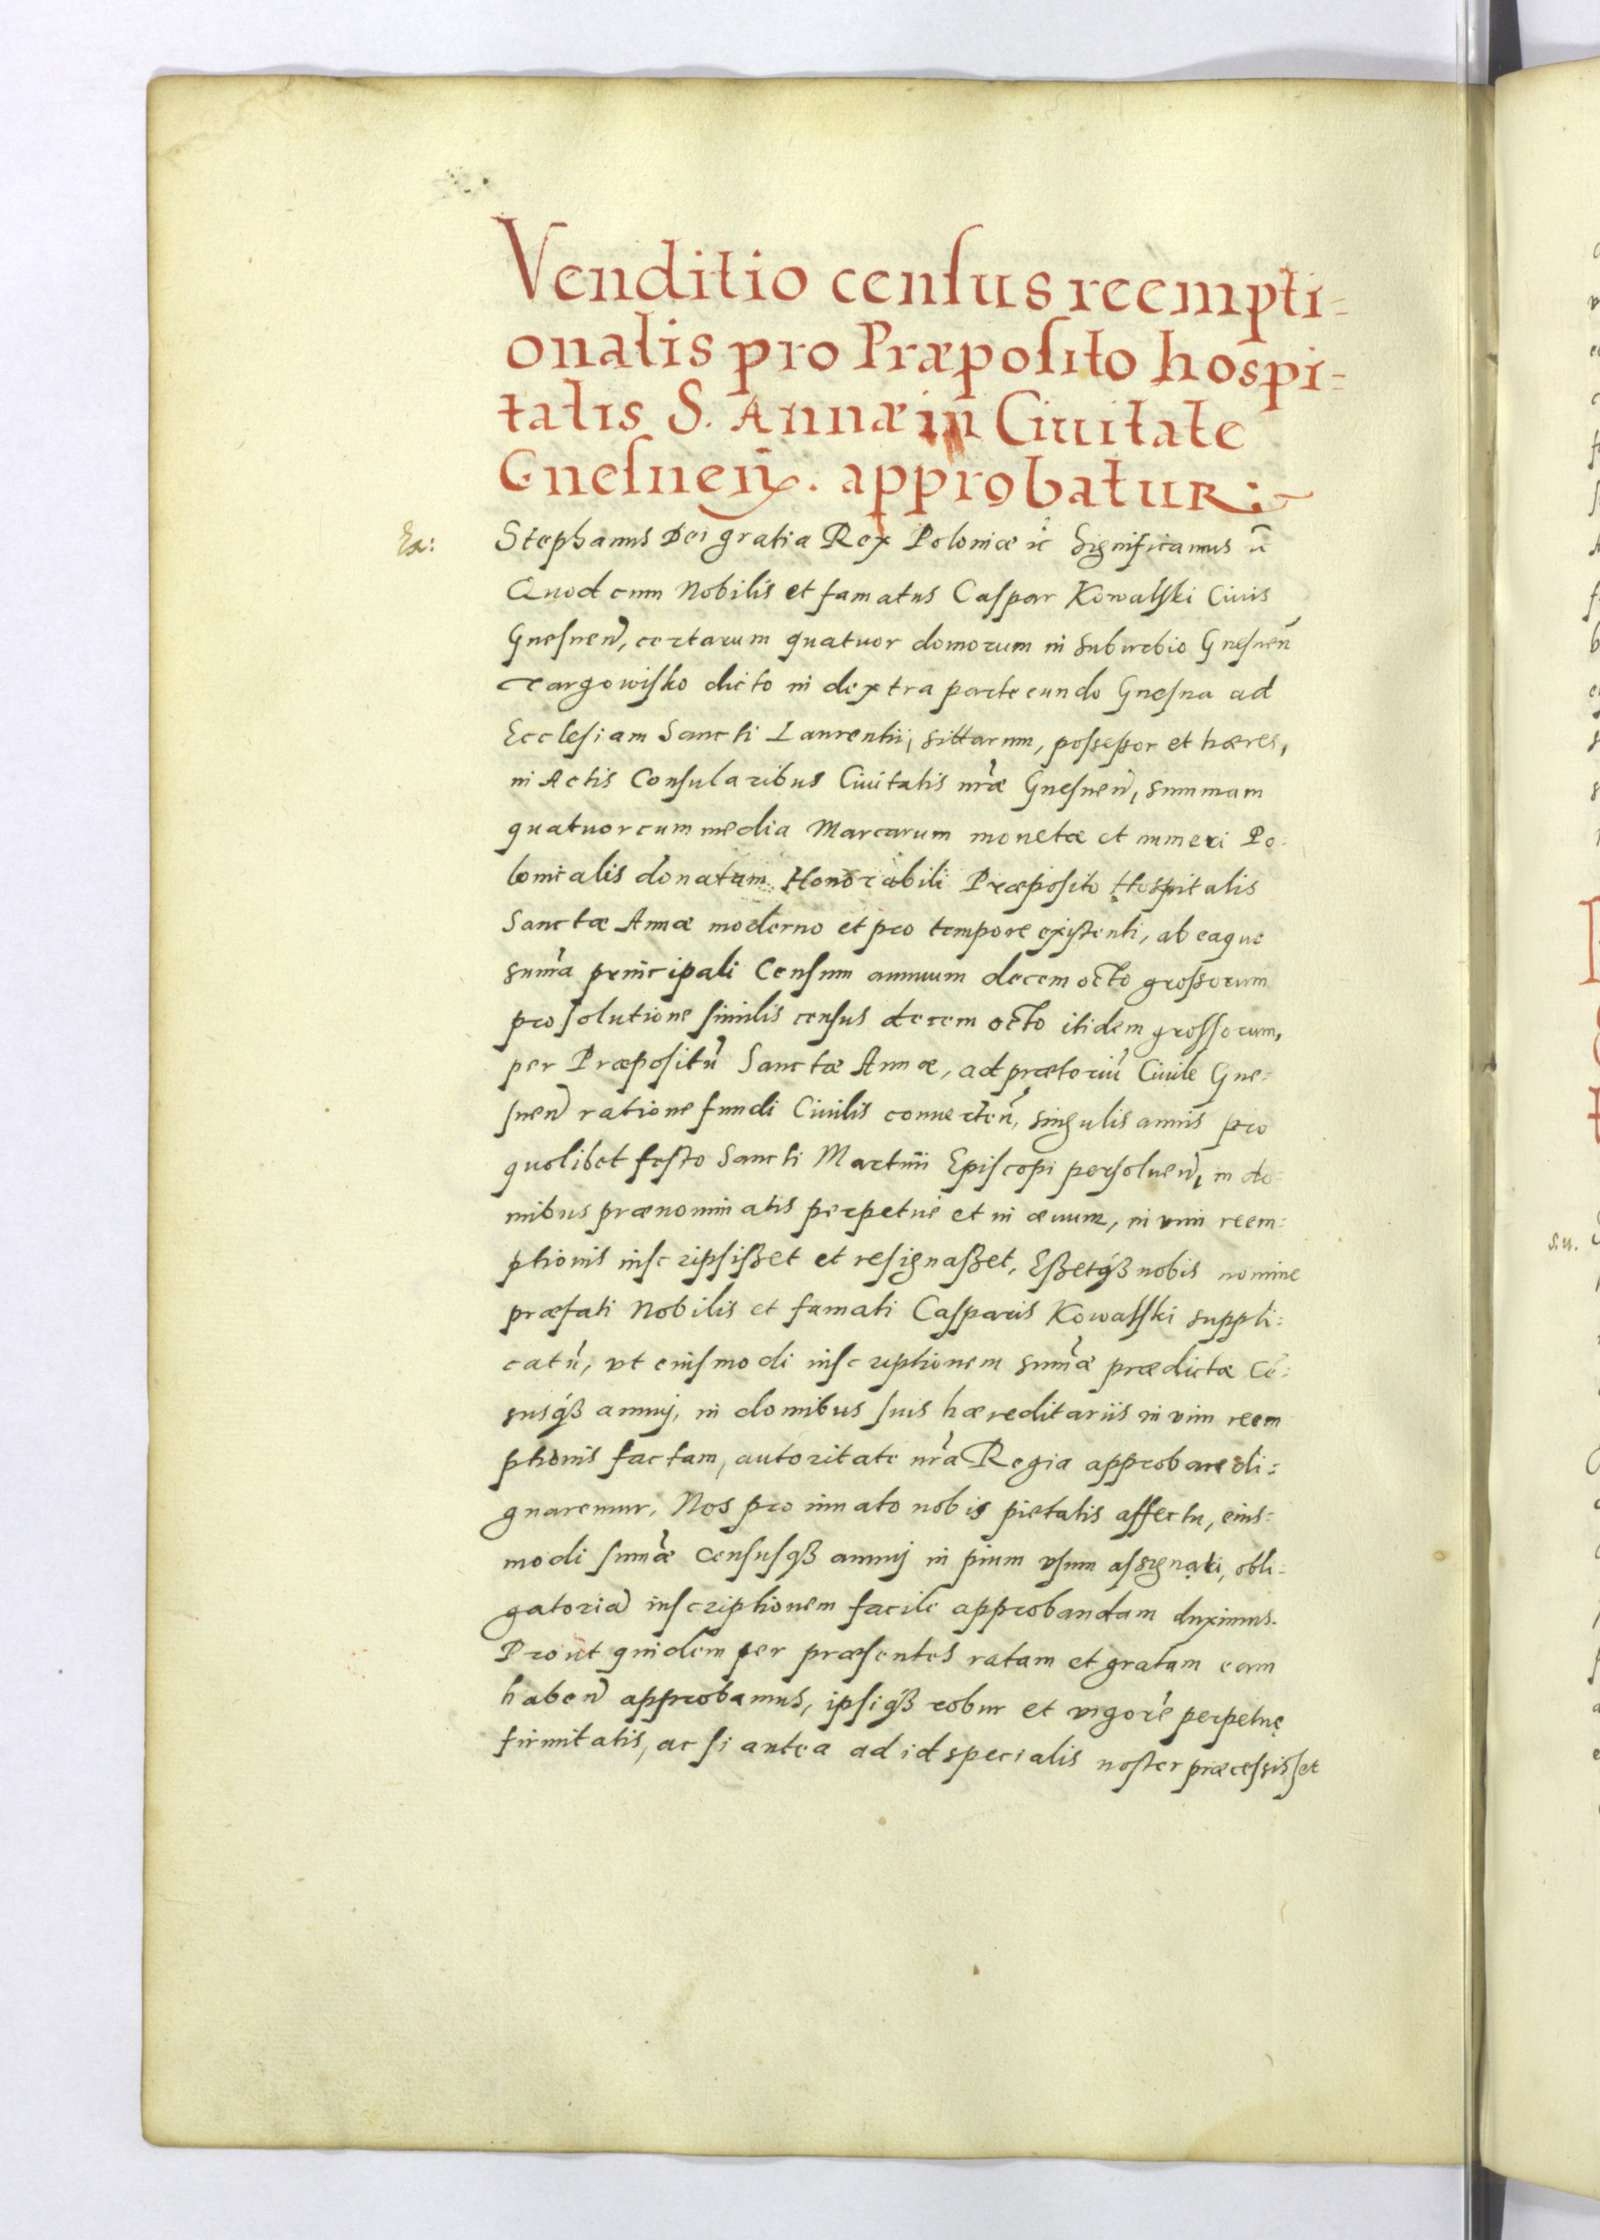 Venditio censsus reempti-
onalis pro Præposito hospi-
talis S. Annæ in Ciuitate
Gnesnen̄. approbatur:
Ex:
Stephanus Dei gratia Rex Poloniæ ꝛc̄ Significamus ꝛc̄
Quod cum Nobilis et famatus Caspar Kowalski Ciuis
Gnesneñ, certarum quatuor domorum in suburbio Gnesneñ
Targowisko dicto in dextra parte eundo Gnesna ad
Ecclesiam Sancti Laurentii, sittarum, possessor et hæres,
in Actis Consularibus Ciuitatis nr̃æ Gnesneñ, summam
quatuor cum media Marcarum monetæ et numeri Po-
lonicalis donatam Honorabili Præposito Hospitalis
Sanctæ Annæ moderno et pro tempore existenti, ab eaque
sum̃a principali Censum annuum decem octo grossorum
pro solutione similis census decem octo itidem grossorum,
per Præpositũ Sanctæ Annæ, ad prætoriũ Ciuile Gne-
sneñ ratione fundi Ciuilis conuerteñ, singulis annis pro
quolibet festo Sancti Martini Episcopi persolueñ, in do-
mibus prænominatis perpetue et in æuum, in vim reem-
ptionis inscripsisset et resignasset, Essetqꝫ nobis nomine
præfati Nobilis et famati Casparis Kowalski suppli-
catũ, vt eiusmodi inscriptionem sum̃æ prædictæ Cẽ-
susqꝫ annuj, in domibus suis hæreditariis in vim reem
ptionis factam, autoritate nr̃a Regia approbare di-
gnaremur. Nos pro innato nobis pietatis affectu, eius-
modi sum̃æ Censusqꝫ annuj in pium vsum assignati, obli-
gatoriã inscriptionem facile approbandam duximus.
Prout quidem per præsentes ratam et gratam eam
habeñ approbamus, ipsiqꝫ robur et vigorẽ perpetuę
firmitatis, ac si antea ad id specialis noster præcessisset
s.u.